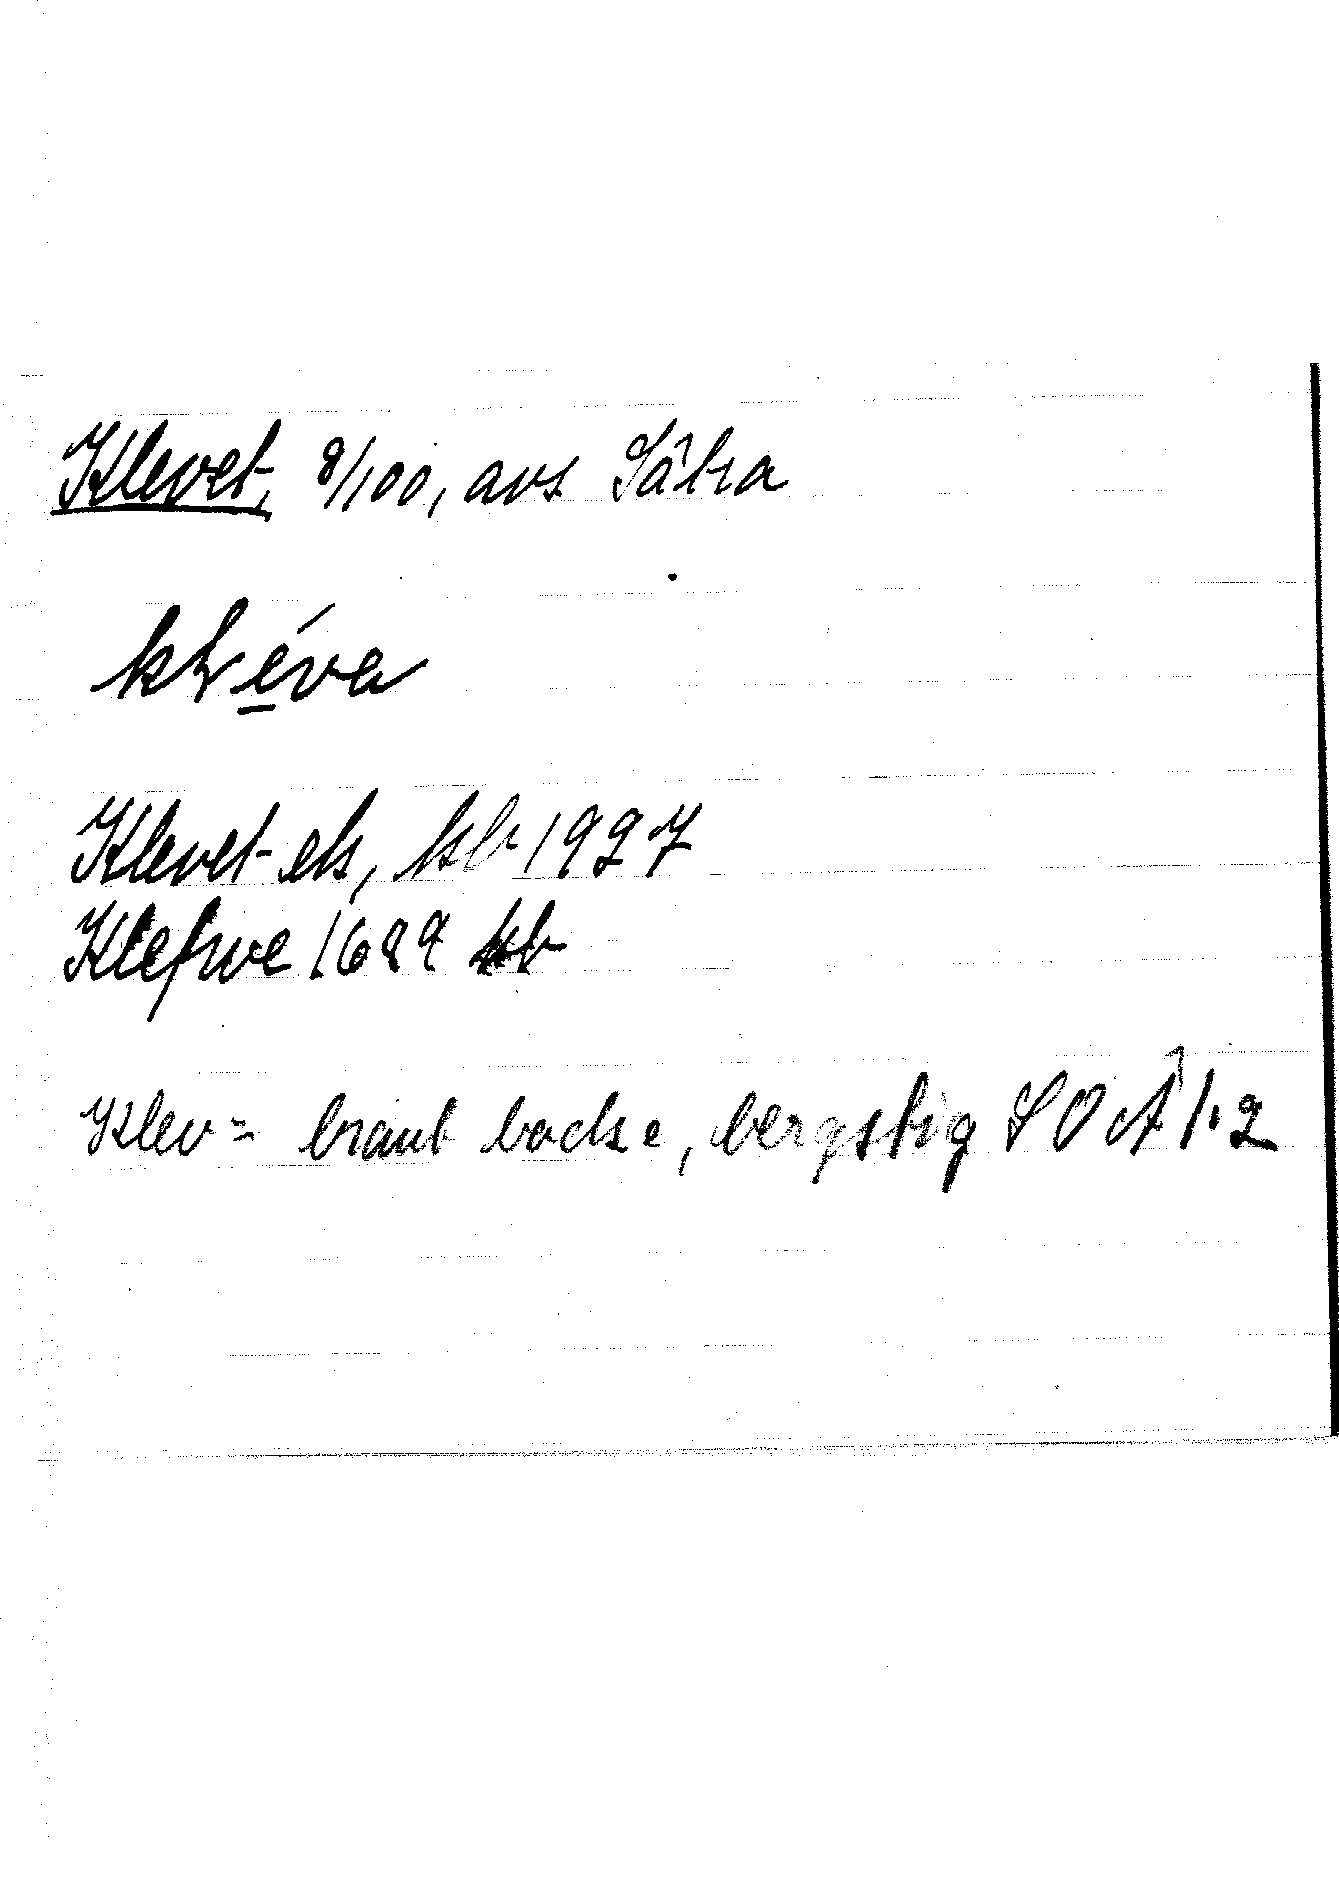 Klevet, 8/100, avs Såka
kLéva
Klevet ek, kb 1927
Klefwe 1689 kb
Klev = brant backe, bergstig SOÄ 1:2